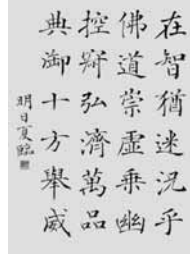 在智猶迷況乎
佛道崇虛乘幽
控寂弘濟萬品
典御十方舉威
明日夏臨